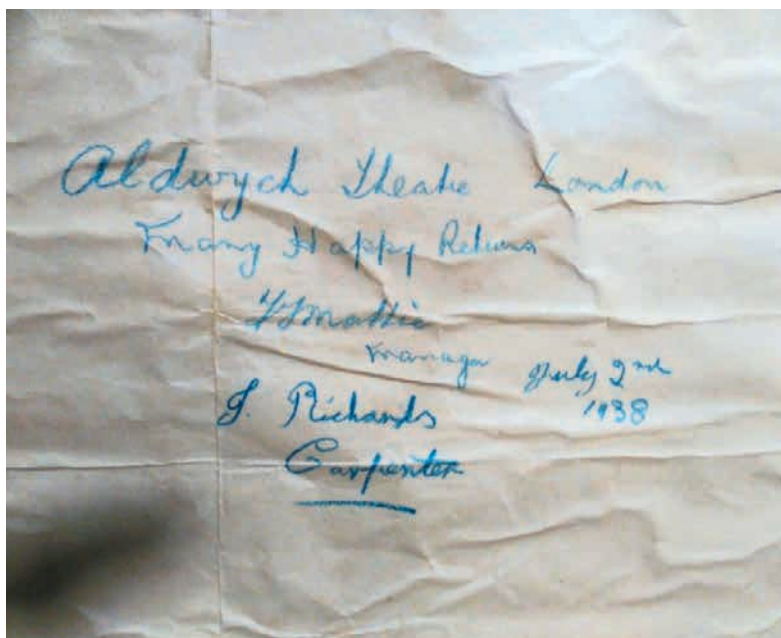 Aldwych Theatre London
Many Happy Returns
Manager
July 2nd
1938
J. Richards
Carpenter